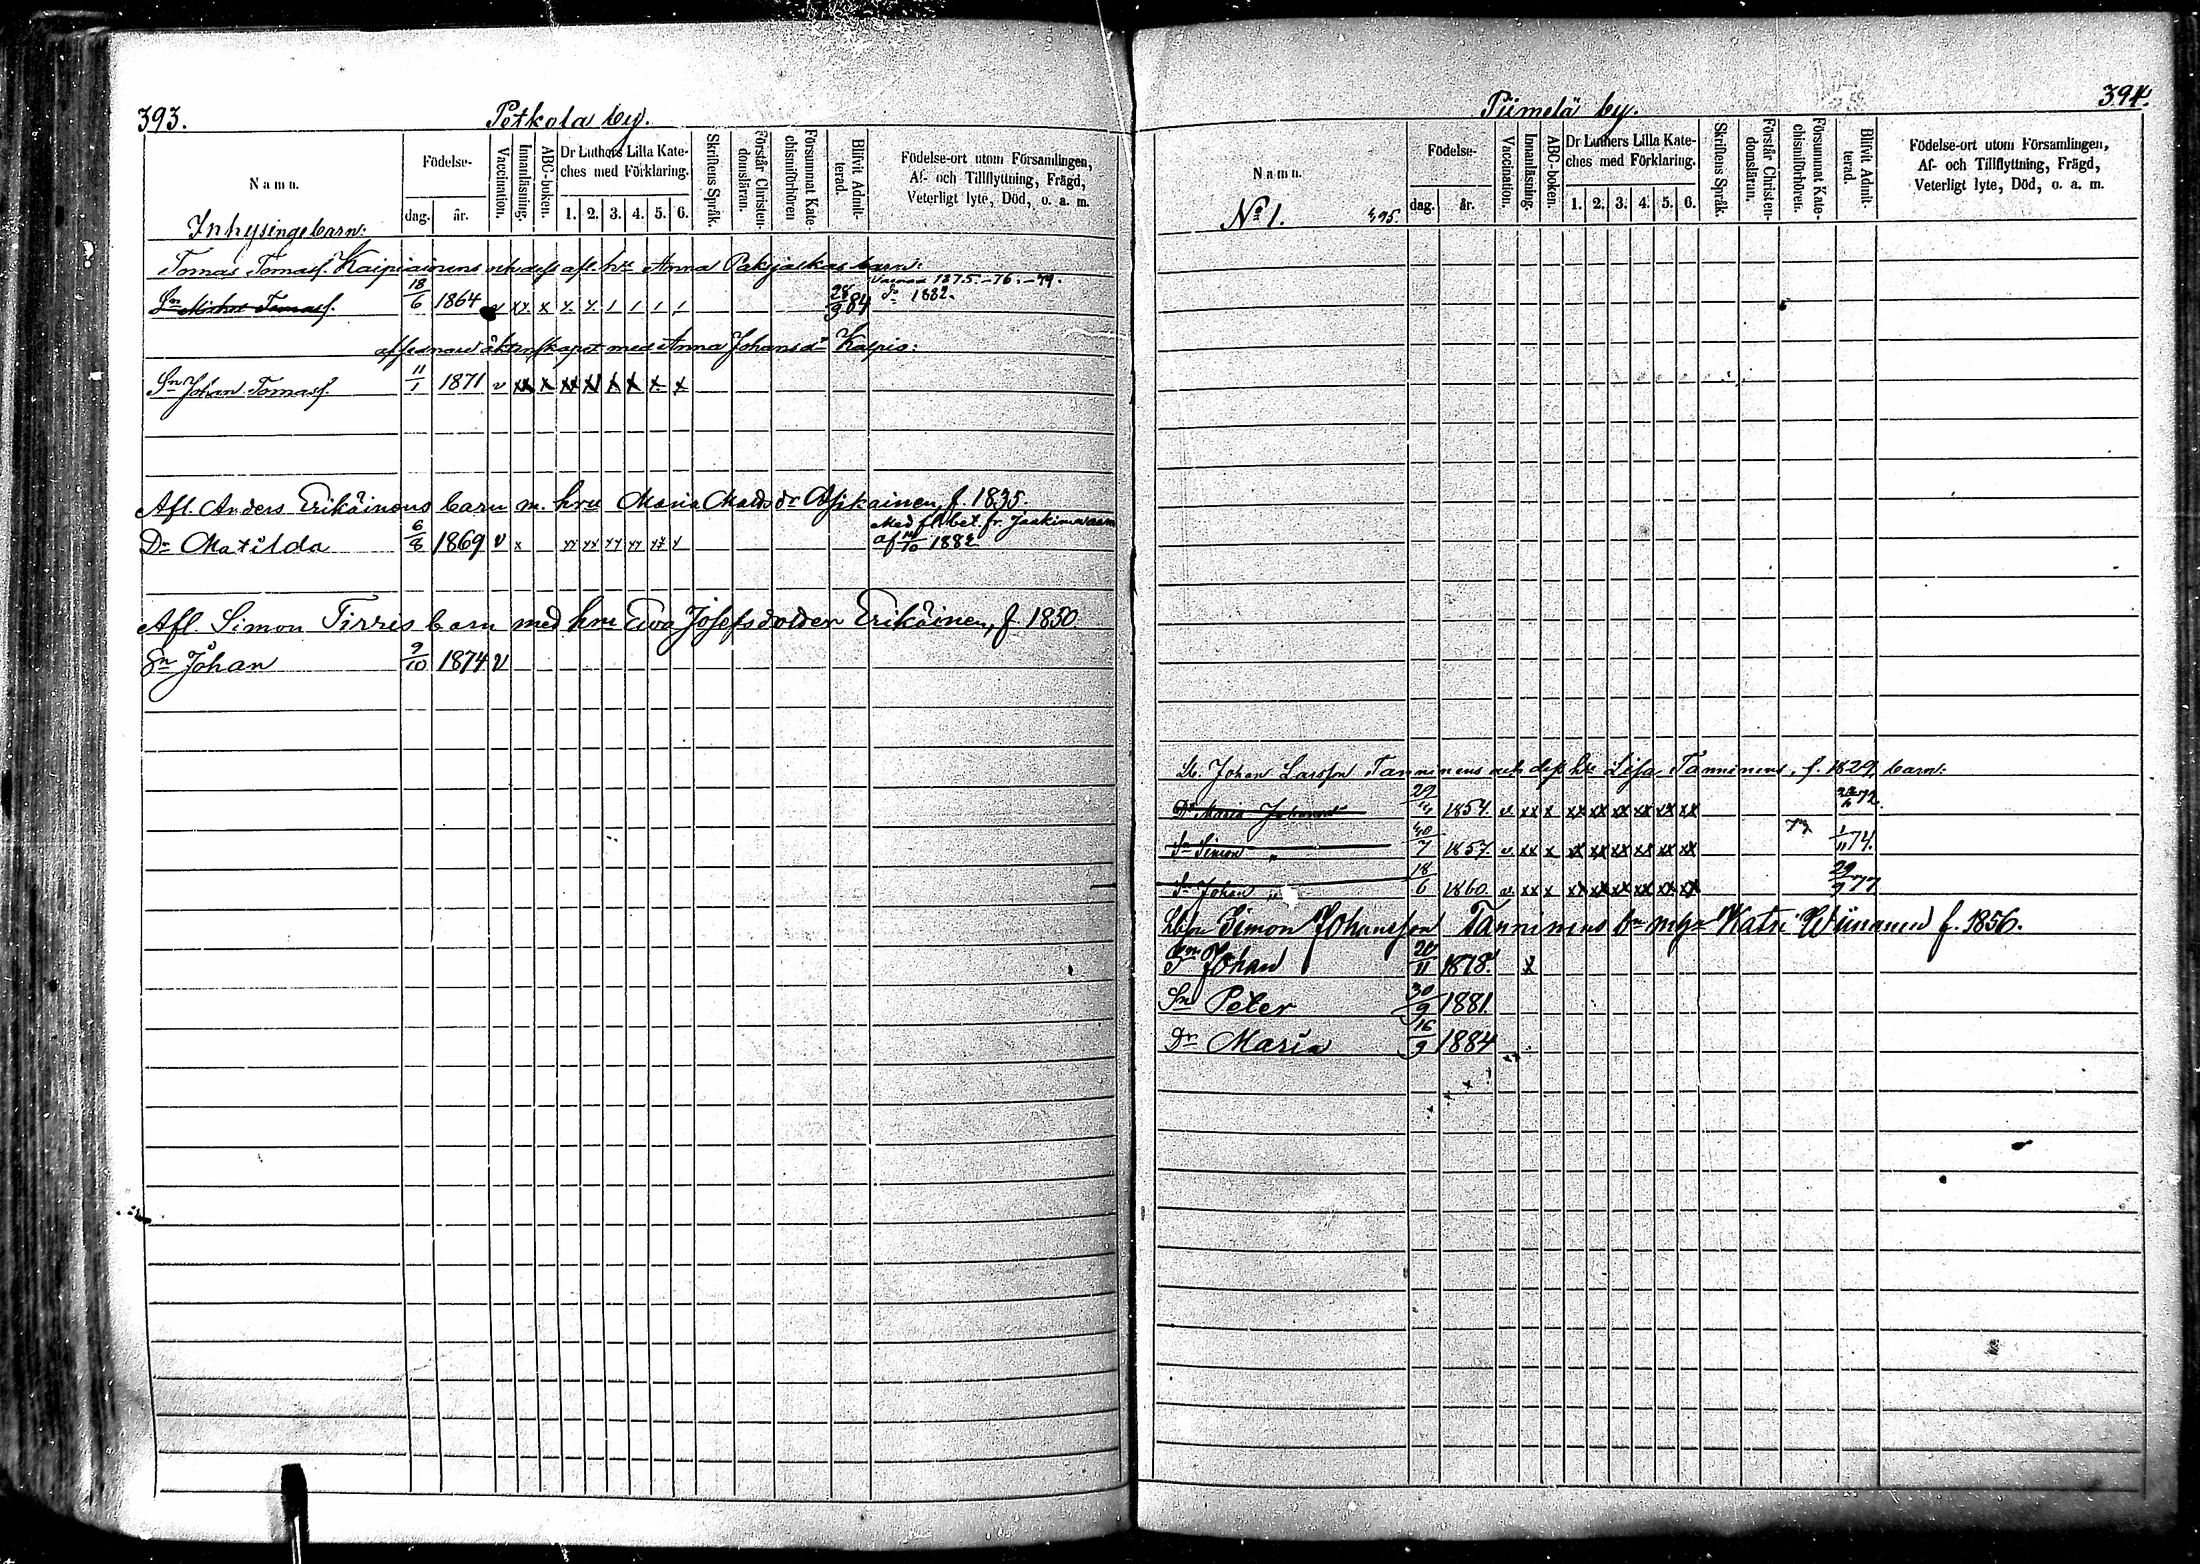 393.
Petkola by.
Namn.
Födelse-
dag.
år.
Vaccination.
Innanläsning.
ABC-boken.
Dr Luthers Lilla Kateches med Förklaring.
1. 2. 3. 4. 5. 6.
Skriftens Språk.
Förstår Christendomsläran.
Försummat Katechismiförhören
Blifvit Admitterad.
Födelse-ort utom Församlingen,
Af- och Tillflyttning, Frägd,
Veterligt lyte, Död, o. a. m.
Inhysingebarn:
Tomas Tomass. Kaipiainens och dess afl. hu Anna barn:
1875.-76.-79.
Sn Tomass. 18/6 1864 v xx x 84 Do 1882.
äktenskapet med Anna Johansdr
Sn Johan Tomass. 11/1 1871 v xx x xx x x x x x
Afl. Anders Erikäinens barn m. hru Maria Matsdr f. 1835
Med flbet. fr. Jaakimvaara
Dr Matilda 6/8 1869 v x xx xx xx xx xx x af 1882
Afl. Simon Tirris barn med hru Eva Josefsdotder Erikäinen, f 1850
Sn Johan 9/10 1874 v
394.
Piimelä by.
Namn.
Födelse-
dag.
år.
Vaccination.
Innanläsning.
ABC-boken.
Dr Luthers Lilla Kateches med Förklaring.
1. 2. 3. 4. 5. 6.
Skriftens Språk.
Förstår Christendomsläran.
Försummat Katechismiförhören.
Blifvit Admitterad.
Födelse-ort utom Församlingen,
Af- och Tillflyttning, Frägd,
Veterligt lyte, Död, o. a. m.
No 1. 395.
Johan Larsson Tanninens och dess hu Lisa Tanninens, f. 1829, barn:
Dr Maria 1854. v xx x xx xx xx xx xx xx 72.
Sn Simon " 1857. v xx x xx xx xx xx xx xx 1/11 74.
Sn Johan " 18/6 1860. v xx x xx xx xx xx xx xx 29/9 77
Simon Johansson Tanninens bn Katri f. 1856.
Sn Johan 20/11 1878. x
Sn Peter 30/9 1881.
Dr Maria 16/9 1884